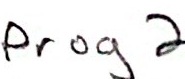 Prog 2